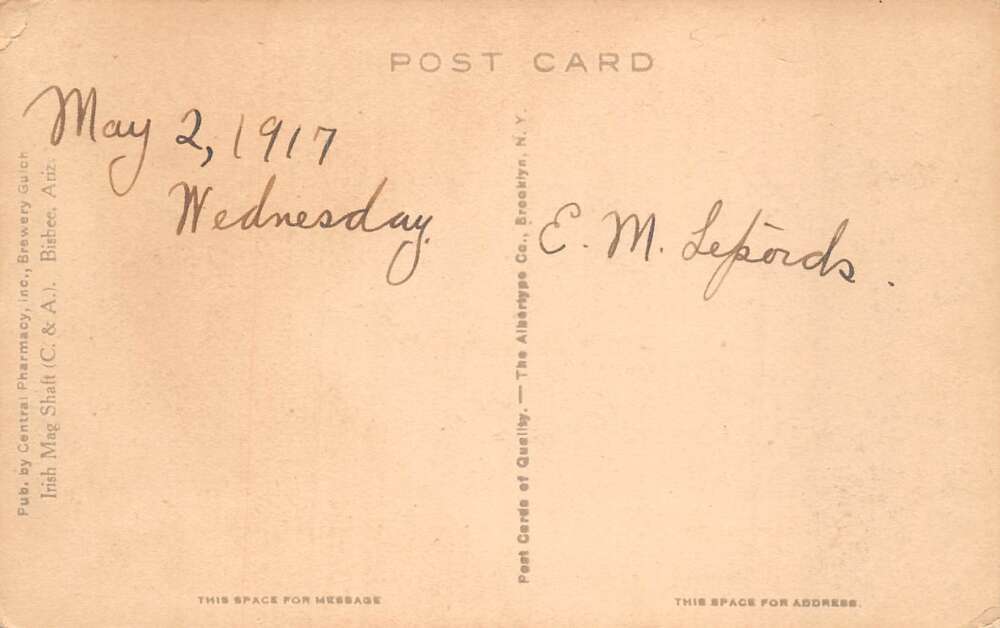 POST CARD
May 2, 1917
Wednesday.
E. M. Lepords.
Pub. by Central Pharmacy, Inc., Brewery Gulch
Irish Mag Shaft (C. & A.). Bisbee, Ariz.
Post Cards of Quality. — The Albertype Co., Brooklyn, N. Y.
THIS SPACE FOR MESSAGE
THIS SPACE FOR ADDRESS.